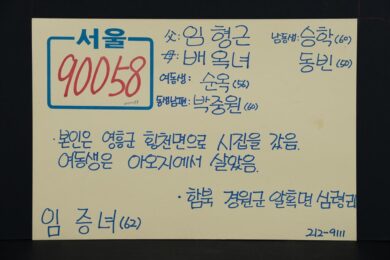 서울
90058
父: 임형근
母: 배옥녀
여동생: 순옥(56)
동생남편: 박중원(60)
남동생: 승학(60)
동빈(50)
·본인은 영흥군 횡천면으로 시집을 갔음.
여동생은 아오지에서 살았음.
·함북 경원군 알혹면 심령리
임증녀(62)
212-9111